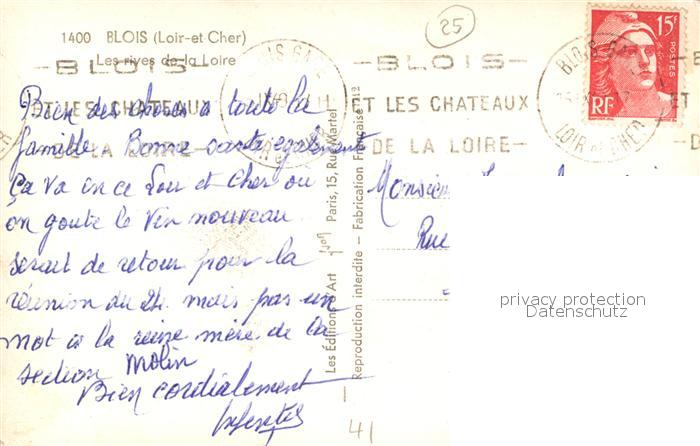 1400 BLOIS (Loir-et Cher)
Les rives de la Loire
25
15F
POSTES
RF
BLOIS
ET LES CHATEAUX
DE LA LOIRE
BLOIS
ET LES CHATEAUX
DE LA LOIRE
BLOIS GARE
LOIR ET CHER
Bien des choses à toute la
famille. Bonne santé également
Ça va en ce Loir et Cher ou
on goute le vin nouveau
serait de retour pour la
réunion du 24. mais pas un
mot à la reine mère de la
section Molin
Bien cordialement
Les Éditions d'Art Yvon Paris, 15, Rue Martel
Reproduction interdite - Fabrication Française
Monsieur
Rue
privacy protection
Datenschutz
41